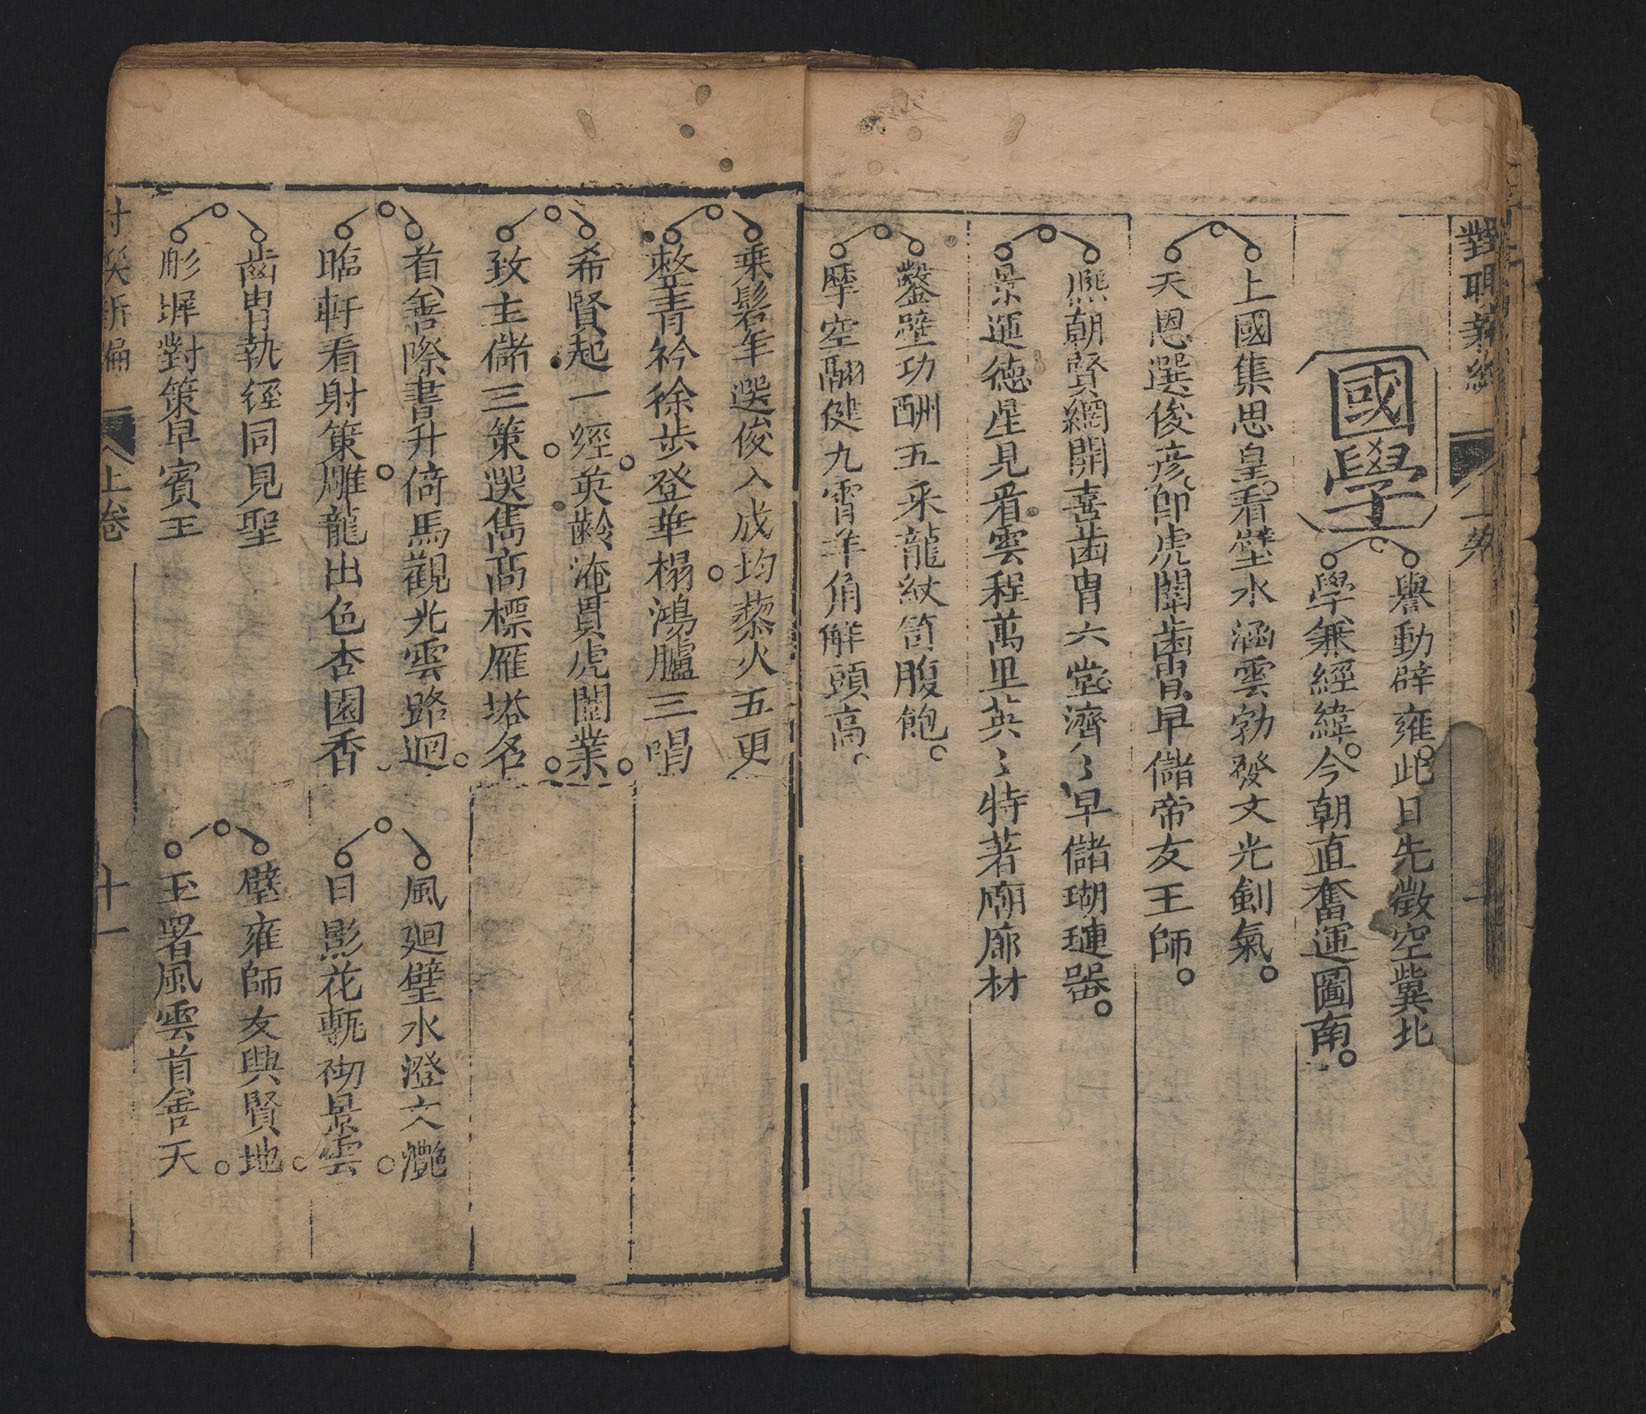 對聯新編
上卷
國學
譽動辟雍此日先徵空冀北
學兼經緯今朝直奮運圖南
上國集思皇看璧水涵雲勃發文光劍氣
天恩選俊彥卽虎闈齒胄早儲帝友王師
熙朝賢網開喜齒胄六堂濟〻早儲瑚璉器
景運德星見看雲程萬里英〻特著廟廊材
鑿壁功酬五采龍紋笥腹飽
摩空翮健九霄羊角解頭高
乗髫年選俊入成均藜火五更
整青衿徐步登華榻鴻臚三唱
希賢起一經英齡淹貫虎闈業
致主儲三策選雋高標雁塔名
首善際書升倚馬觀光雲路迥
臨軒看射策雕龍出色杏園香
風廻璧水澄文灔
日影花甎礽景雲
齒胄執經同見聖
彤墀對策早賓王
璧雍師友興賢地
玉署風雲首善天
新編
上卷
十一